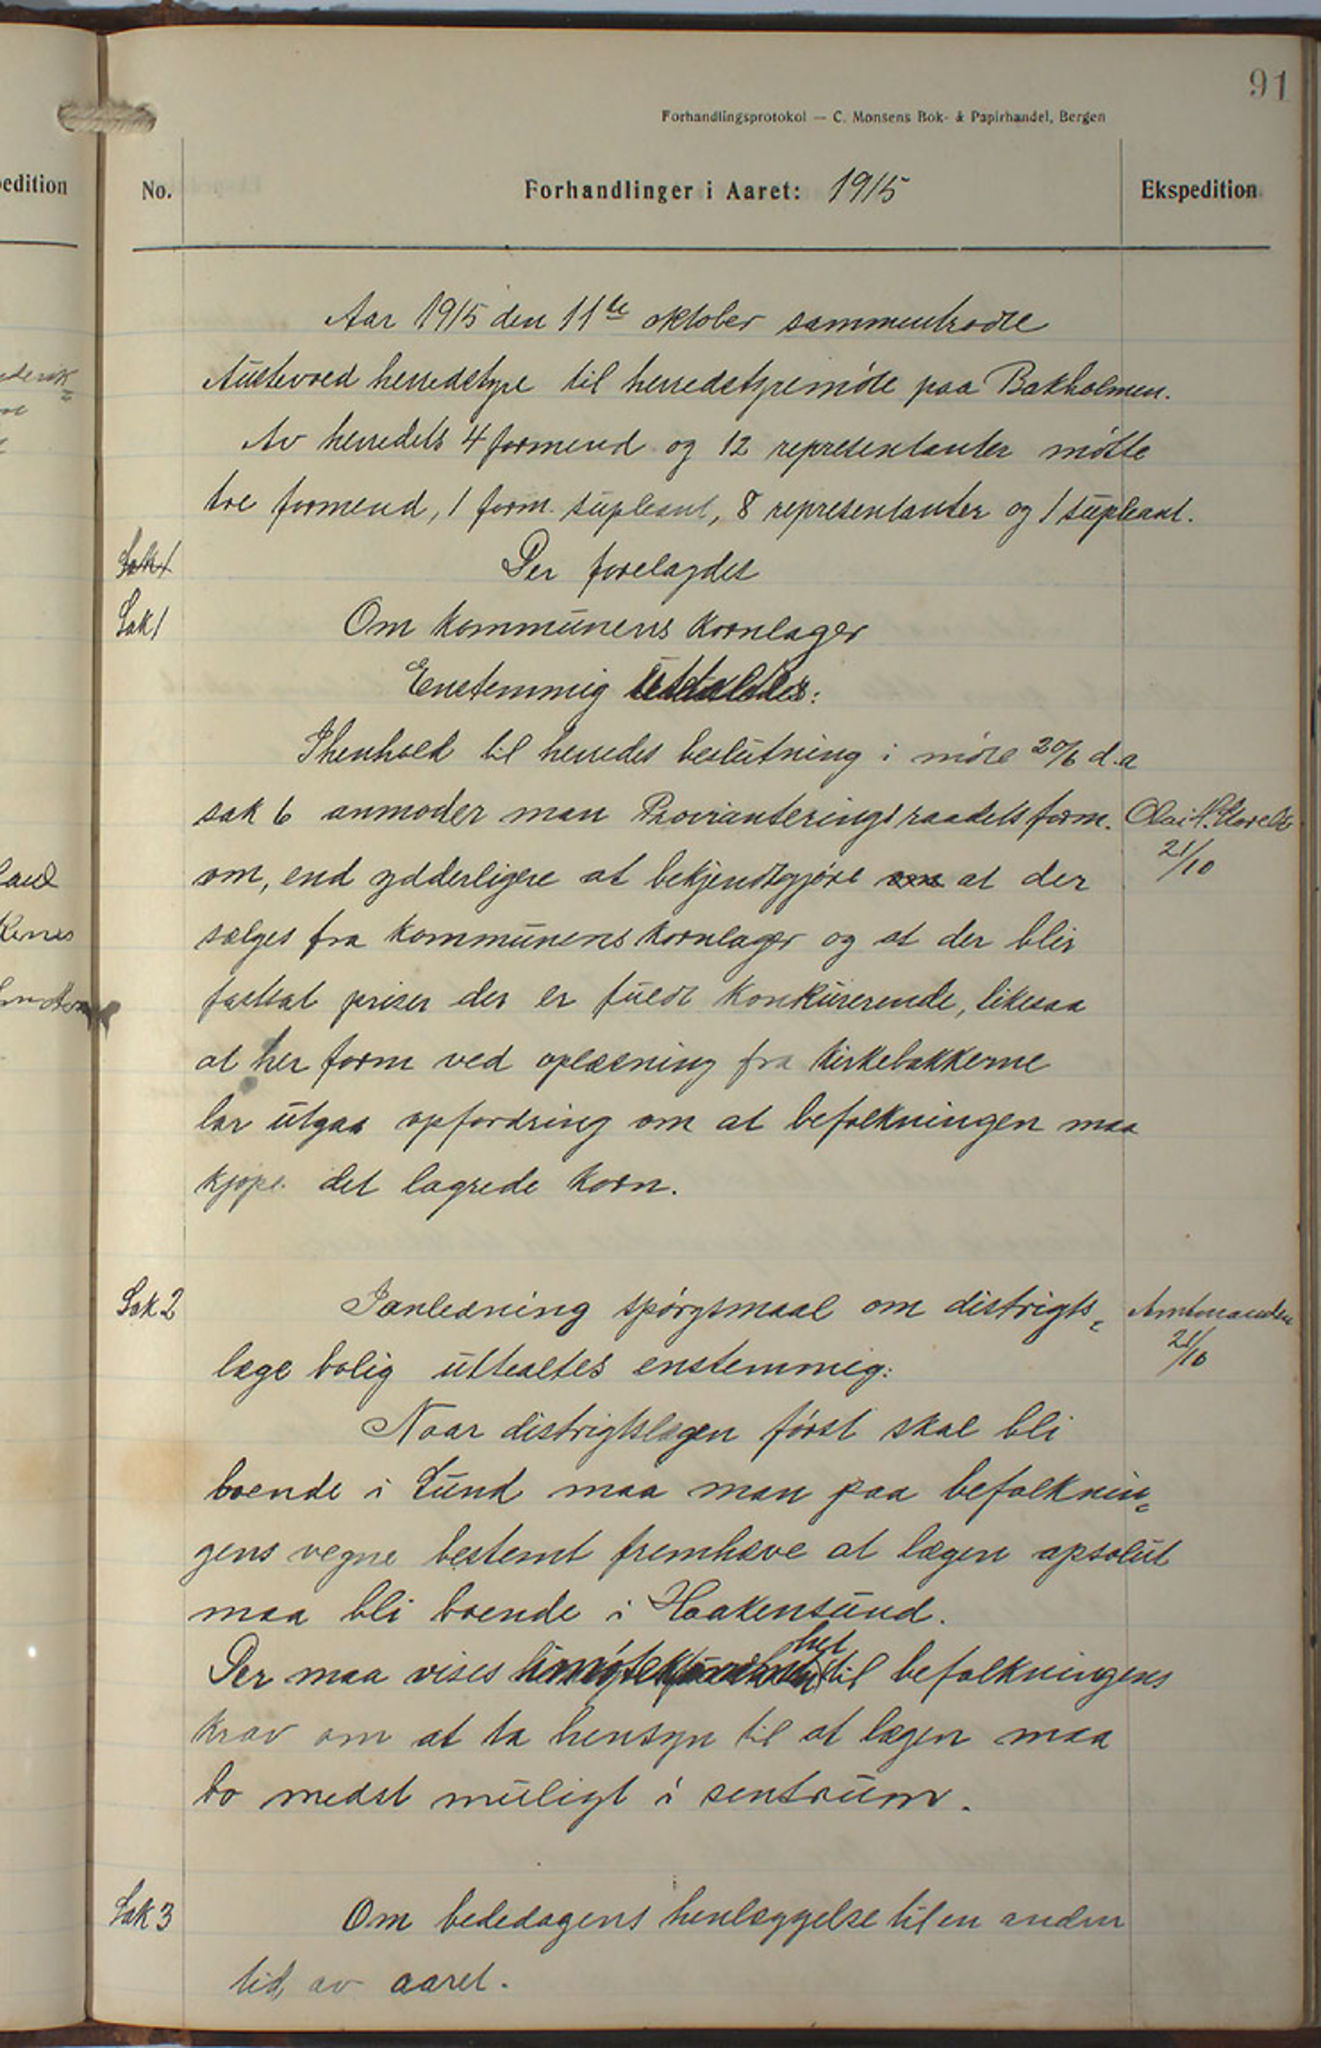 91
Forhandlingsprotokol — C. Monsens Bok- & Papirhandel, Bergen
edition
No.
Forhandlinger i Aaret: 1915
Ekspedition
Aar 1915 den 11te oktober sammentraadte
Austevoed herredstyre til herredstyremöte paa Bakholmen.
Av herredets 4 formend og 12 representanter mötte
tre formend, 1 form. supleant, 8 representanter og 1 supleant.
Sak 1
Der forelagdes
Sak 1
Om kommunens kornlager
Enstemmig uttaltes:
Ihenhold til herredets beslutning i möte 20/6 d.a
sak 6 anmoder man Provianteringsraadets form.
21/10
om, end ydderligere at bekjendtgjöre om at der
sælges fra kommunens kornlager og at der blir
fastsat priser der er fuldt konkurerende, likesaa
at her form ved oplæsning fra kirkebakkerne
lar utgaa opfordring om at befolkningen maa
kjöpe det lagrede korn.
Sak 2
Ianledning spörgsmaal om distrigts-
Amtmanden
21/10
læge bolig uttaltes enstemmig:
Naar distrigtslægen först skal bli
boende i Sund maa man paa befolknin-
gens vegne bestemt fremhæve at lægen apsolut
maa bli boende i Haakensund.
Der maa vises imötekommenhet til befolkningens
krav om at ta hensyn til at lægen maa
bo medst muligt i sentrum.
Sak 3
Om bededagens henlæggelse til en anden
tid av aaret.